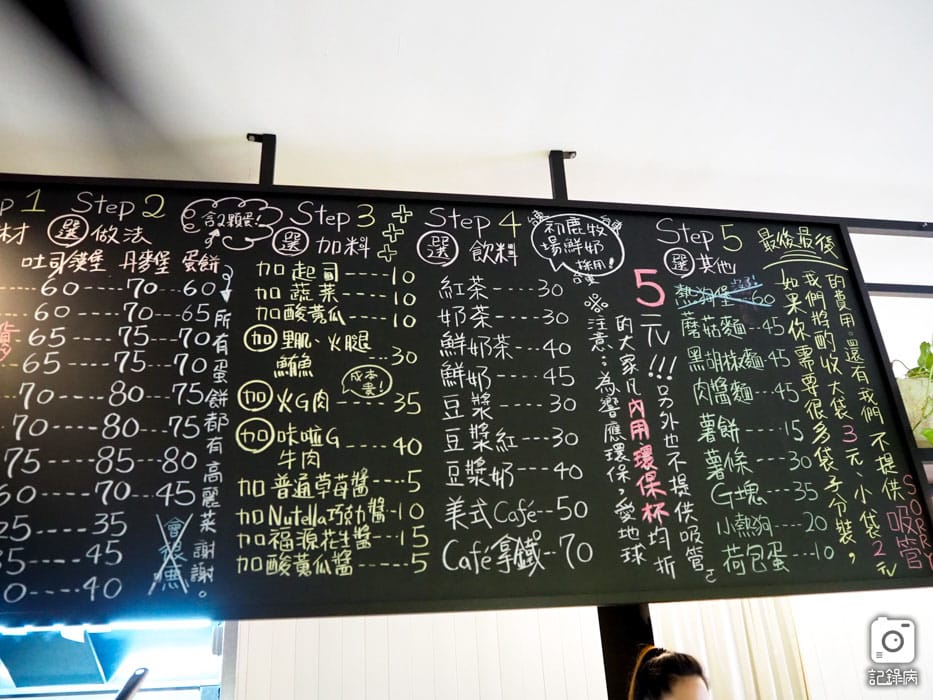 p 1
材
Step 2
選 做法
含2顆蛋!
吐司 漢堡 丹麥堡 蛋餅
60----70---60
60----70---65
65----75---70
65----75---70
70----80----75
70----80----75
75----85---80
60----70---45
25----35
35----45
0----40
會很嘿
所有蛋餅都有高麗菜謝謝。
Step 3
選 加料
加起司-----10
加蔬菜-----10
加酸黃瓜-----10
加 野肌、火腿
鮪魚-----30
成本貴!
加 火G肉-----35
加 咔啦G
牛肉-----40
加普通草苺醬---5
加Nutella巧克力醬-10
加福源花生醬---15
加酸黃瓜醬-----5
Step 4
選 飲料
初鹿牧
場鮮奶
採用!
紅茶----30
奶茶----30
鮮奶茶---40
鮮奶----45
豆漿----30
豆漿紅---30
豆漿奶---40
美式Café--50
Café拿鐵--70
※注意:為響應環保,愛地球
的大家凡內用環保杯均折
5元!!!另外也不提供吸管
Step 5
選 其他
熱狗堡 60
蘑菇麵--45
黑胡椒麵-45
肉醬麵--45
薯餅----15
薯條----30
G塊----35
小熱狗---20
荷包蛋---10
最後最後
如果你需要很多袋子分裝,
我們將酌收大袋3元、小袋2元
的費用。還有我們不提供吸管
SORRY
記錄病